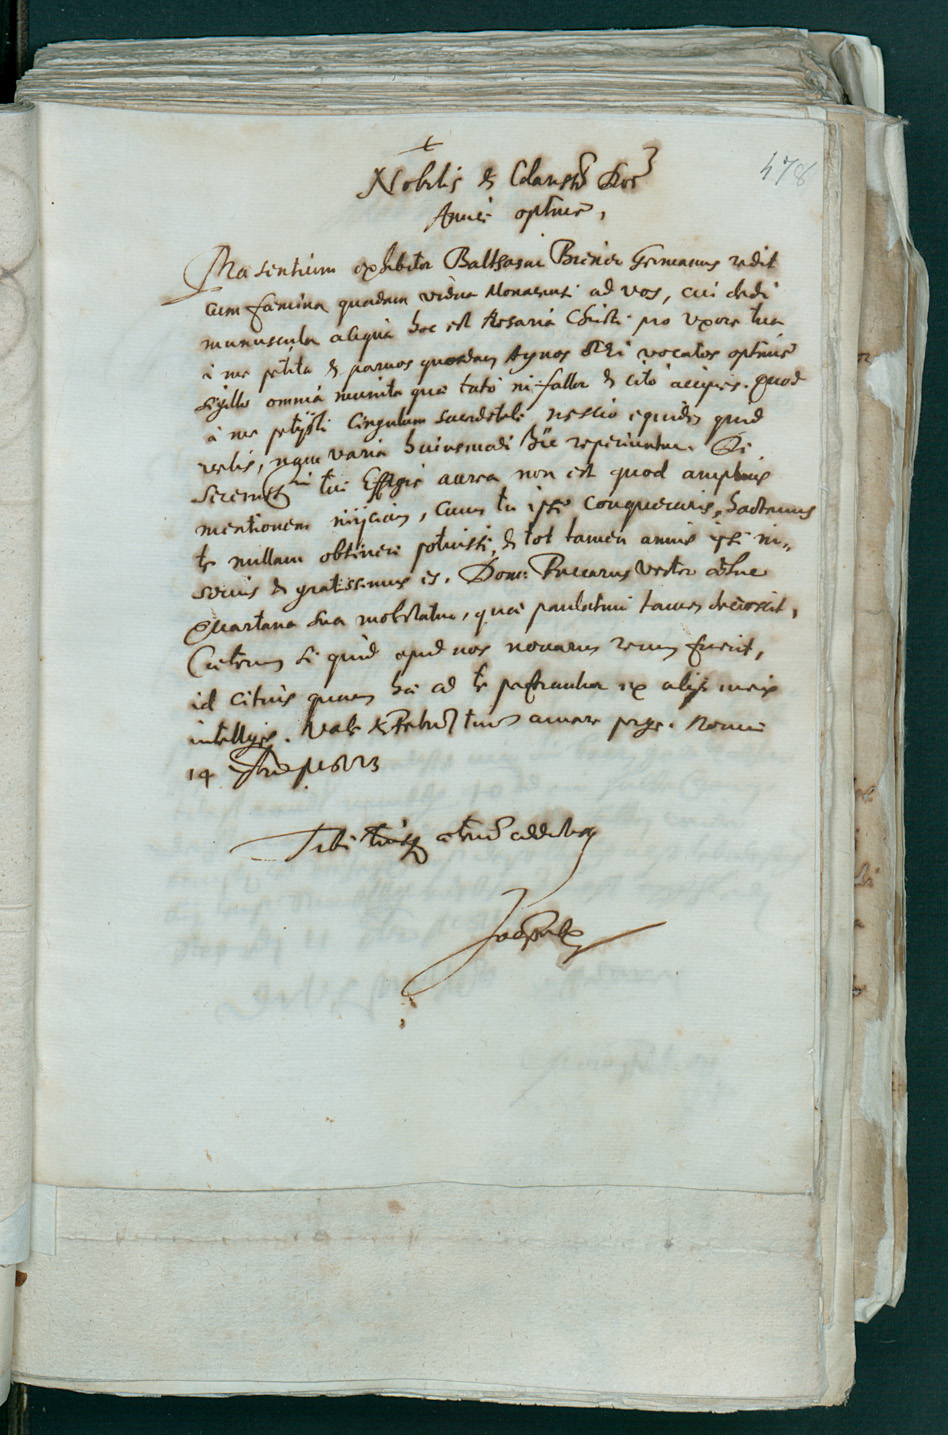 478
Nobilis & Clariss. Dne
Amice optime,
Præsentium exhibitor Balthasar Breiner Germanus redit
cum fæmina quadam vidua Monacensi ad vos, cui dedi
munuscula aliqua hoc est Rosaria Christi pro uxore tua
à me petita & parvos quosdam Agnos Dei vocatos optime
sigillo omnia munita quæ tutò ni fallor & citò accipies. Quod
à me petijsti Cingulum sacerdotale nescio equidem quid
velis, nam varia huiusmodi hîc reperiuntur. De
Sereniss. tui Effigie aurea non est quod amplius
mentionem inijciam, cum tu ipse conqueraris, hactenus
te nullam obtinere potuisse, & tot tamen annis ipsi in-
servis & gratissimus es. Dom. vester adhuc
Quartana sua molestatur, quæ paulatim tamen decrescit,
Cæterum si quid apud nos novarum rerum fuerit,
id citius quam hæ ad te perferantur ex alijs meis
intelliges. Vale & tuum amare perge. Romæ
14
Tibi tuisque addictus